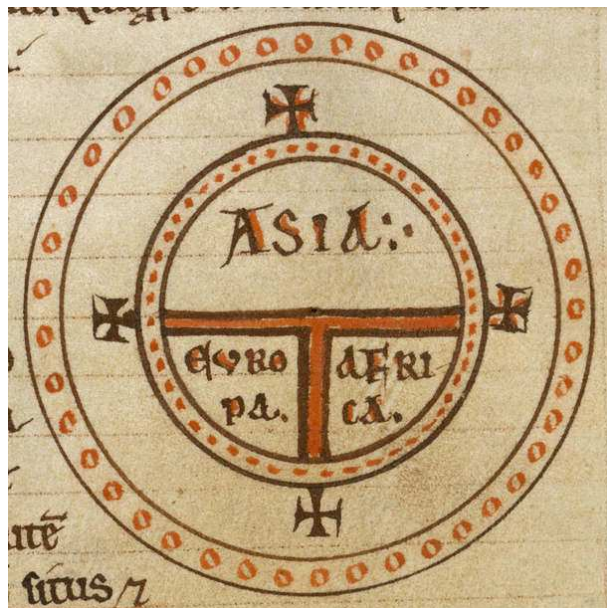 ASIA:·
EURO
PA.
AFRI
CA.
situs